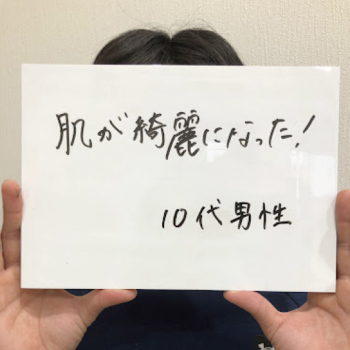 肌が綺麗になった!
10代男性